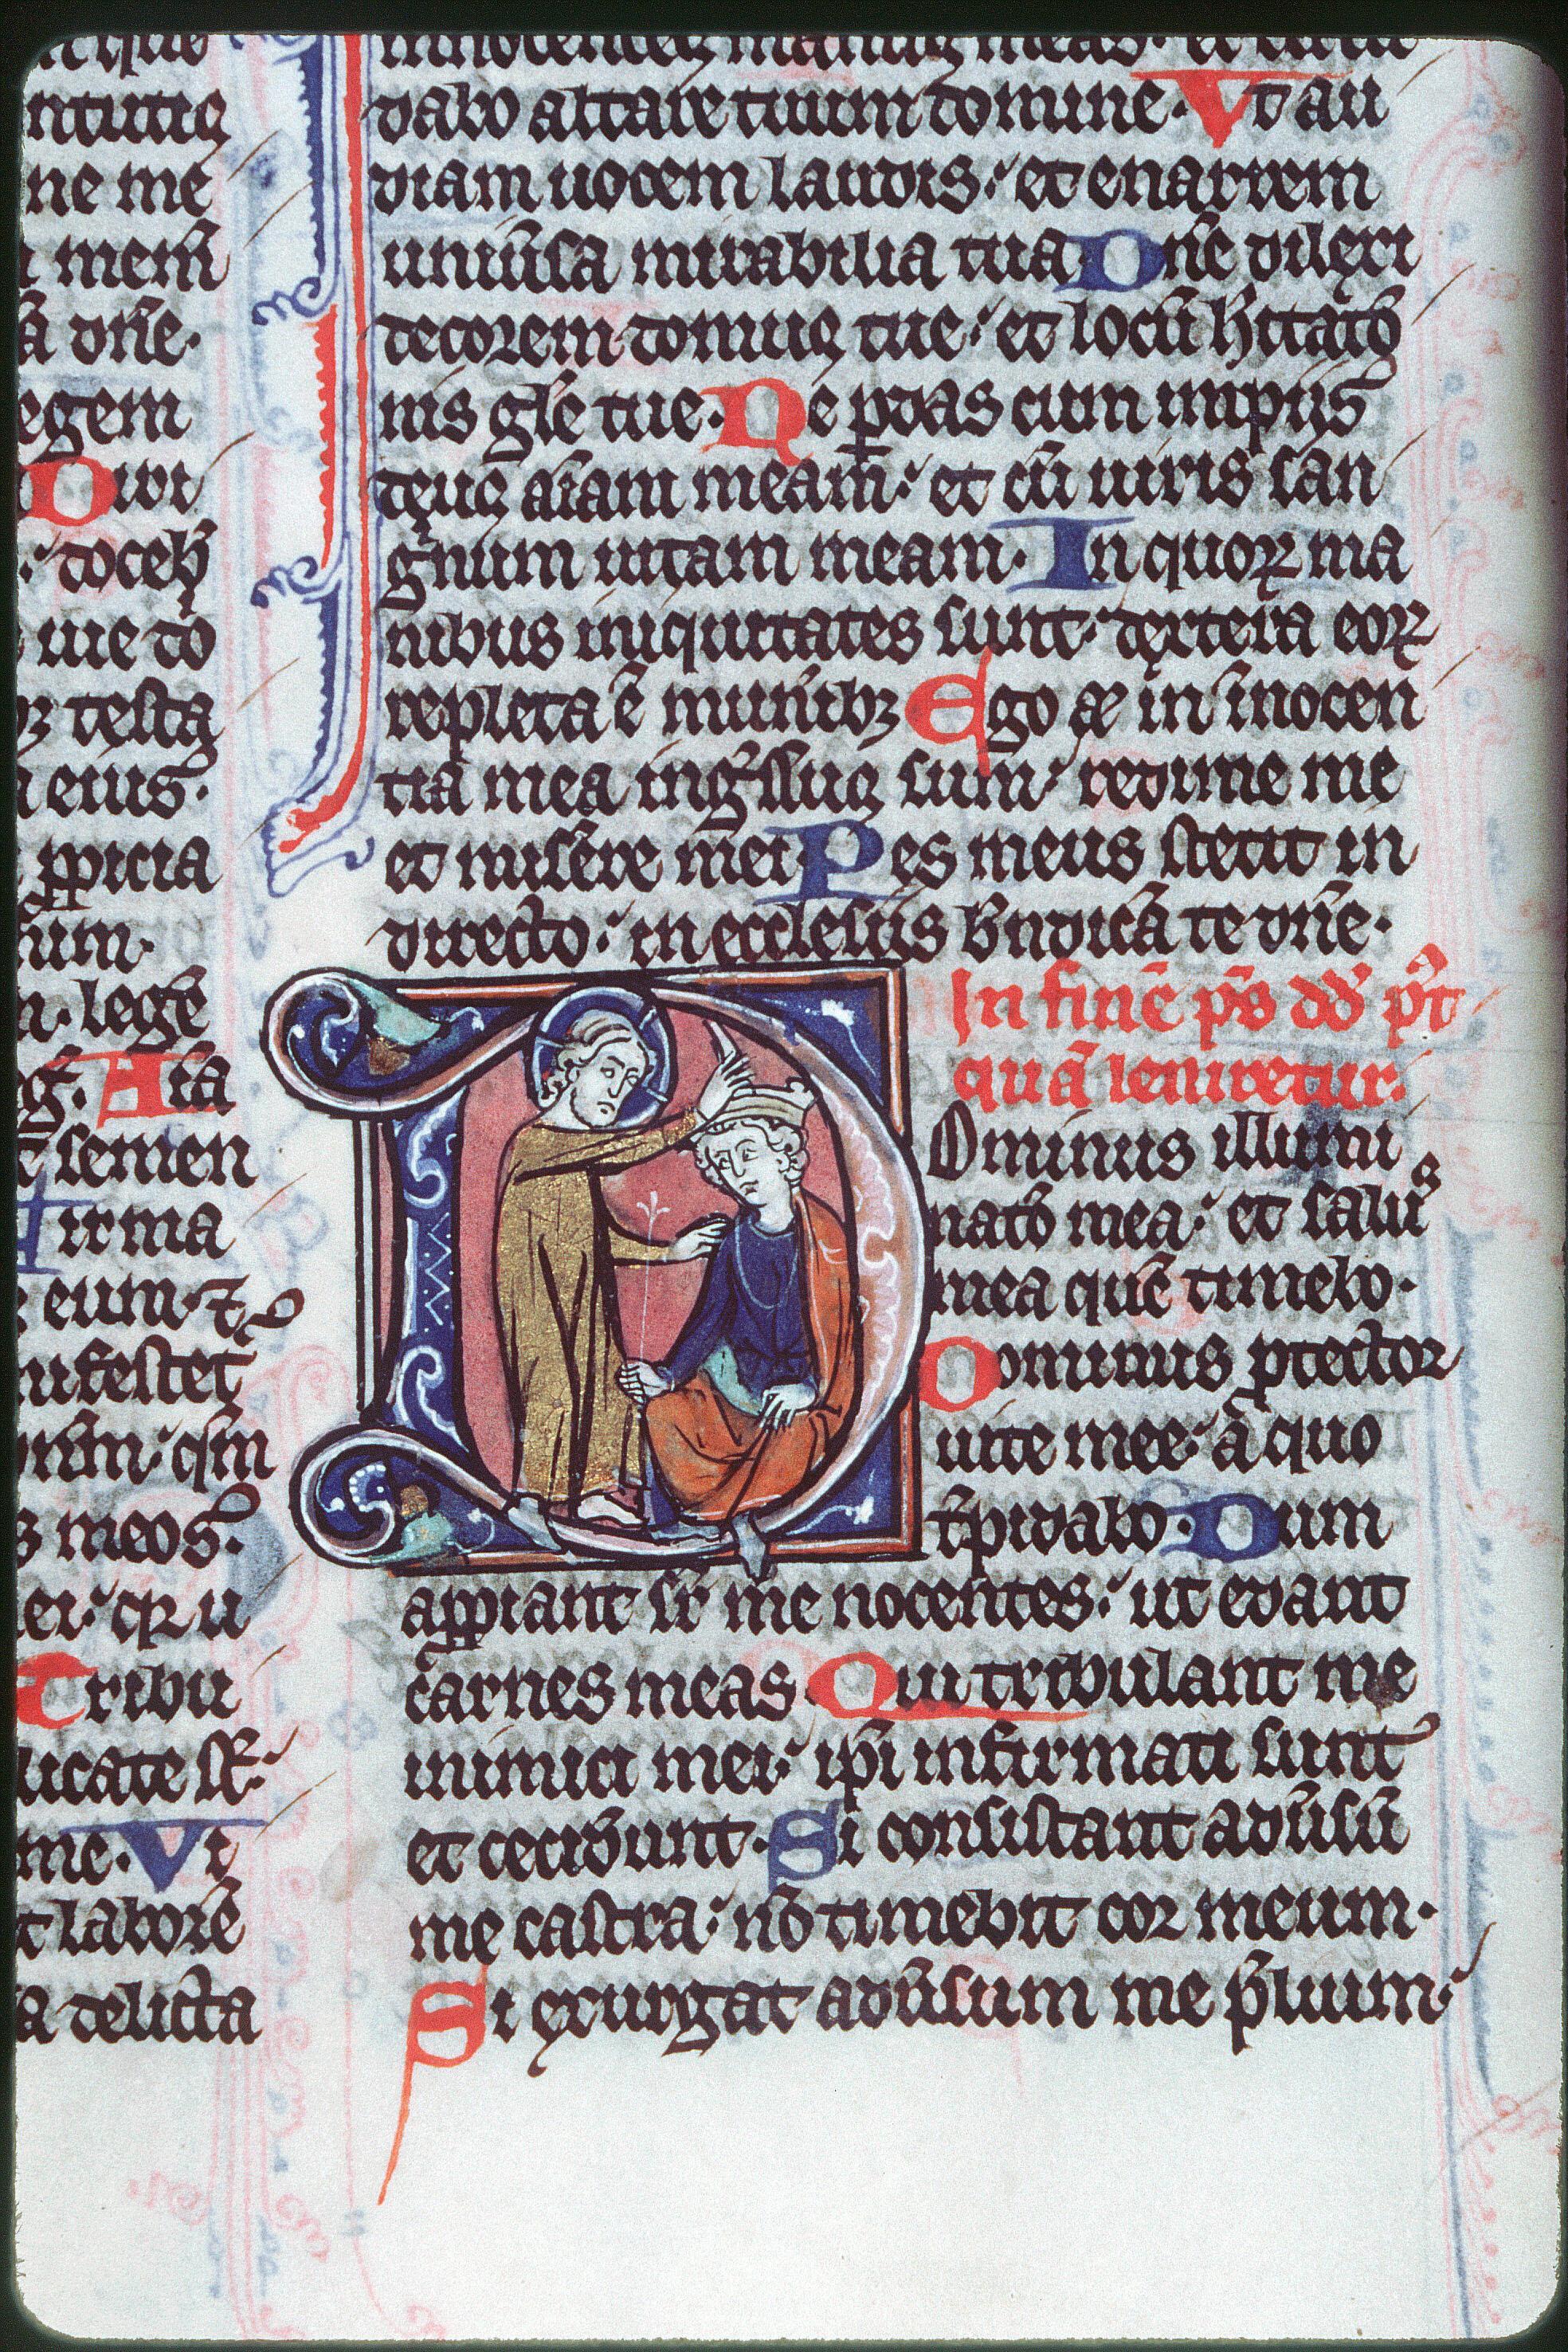 ntutis
ne me
mem̄
dn̄e.
egem
Diri
doceb̄
uie do
testa
eius.
ꝓpicia
num.
legē
Aīa
semen
Firma
eum. ⁊
nifestet
meos.
Tribu
me. Vi
laborē
delicta
innocentes manus meas. et circū
dabo altare tuum domine. Vt au
diam uocem laudis. et enarrem
uniu̅sa mirabilia tua. Dn̄e dilexi
decorem domus tue. et locū hītatō
nis gl̄e tue. Ne ꝑdas cum impiis
deus aīam meam. et cū uiris san
gnum uitam meam. In quoꝝ ma
nibus iniquitates sunt. dextera eoꝝ
repleta ē mun̄ibꝫ Ego aū in īnocen
tia mea ingssus sum. redime me
et misēre mei. Pes meus stetit in
directo. in ecclesiis bn̄dicā te dn̄e.
In finē ps̄ dd̄ p̄t
quā leniretur.
Dominus illumi
natō mea. et salus
mea quē timebo.
Dominus ꝓtector
uite mee. a quo
tp̄idabo. Dum
appiant sr̄ me nocentes. ut edant
carnes meas. Qui tribulant me
inimici mei. ip̄i infirmati sunt
et cecidunt. Si consistant adūsū
me castra. nō timebit cor meum.
Si exurgat adūsum me p̄lium.